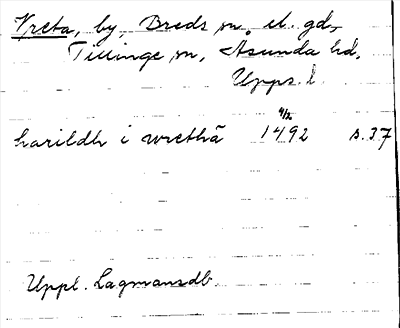 Vreta, by, Breds sn. el. gd,
Tillinge sn, Åsunda hd,
Upps. l.
4/12
harildh i wrethā 1492 s. 37
Uppl. Lagmansdb.